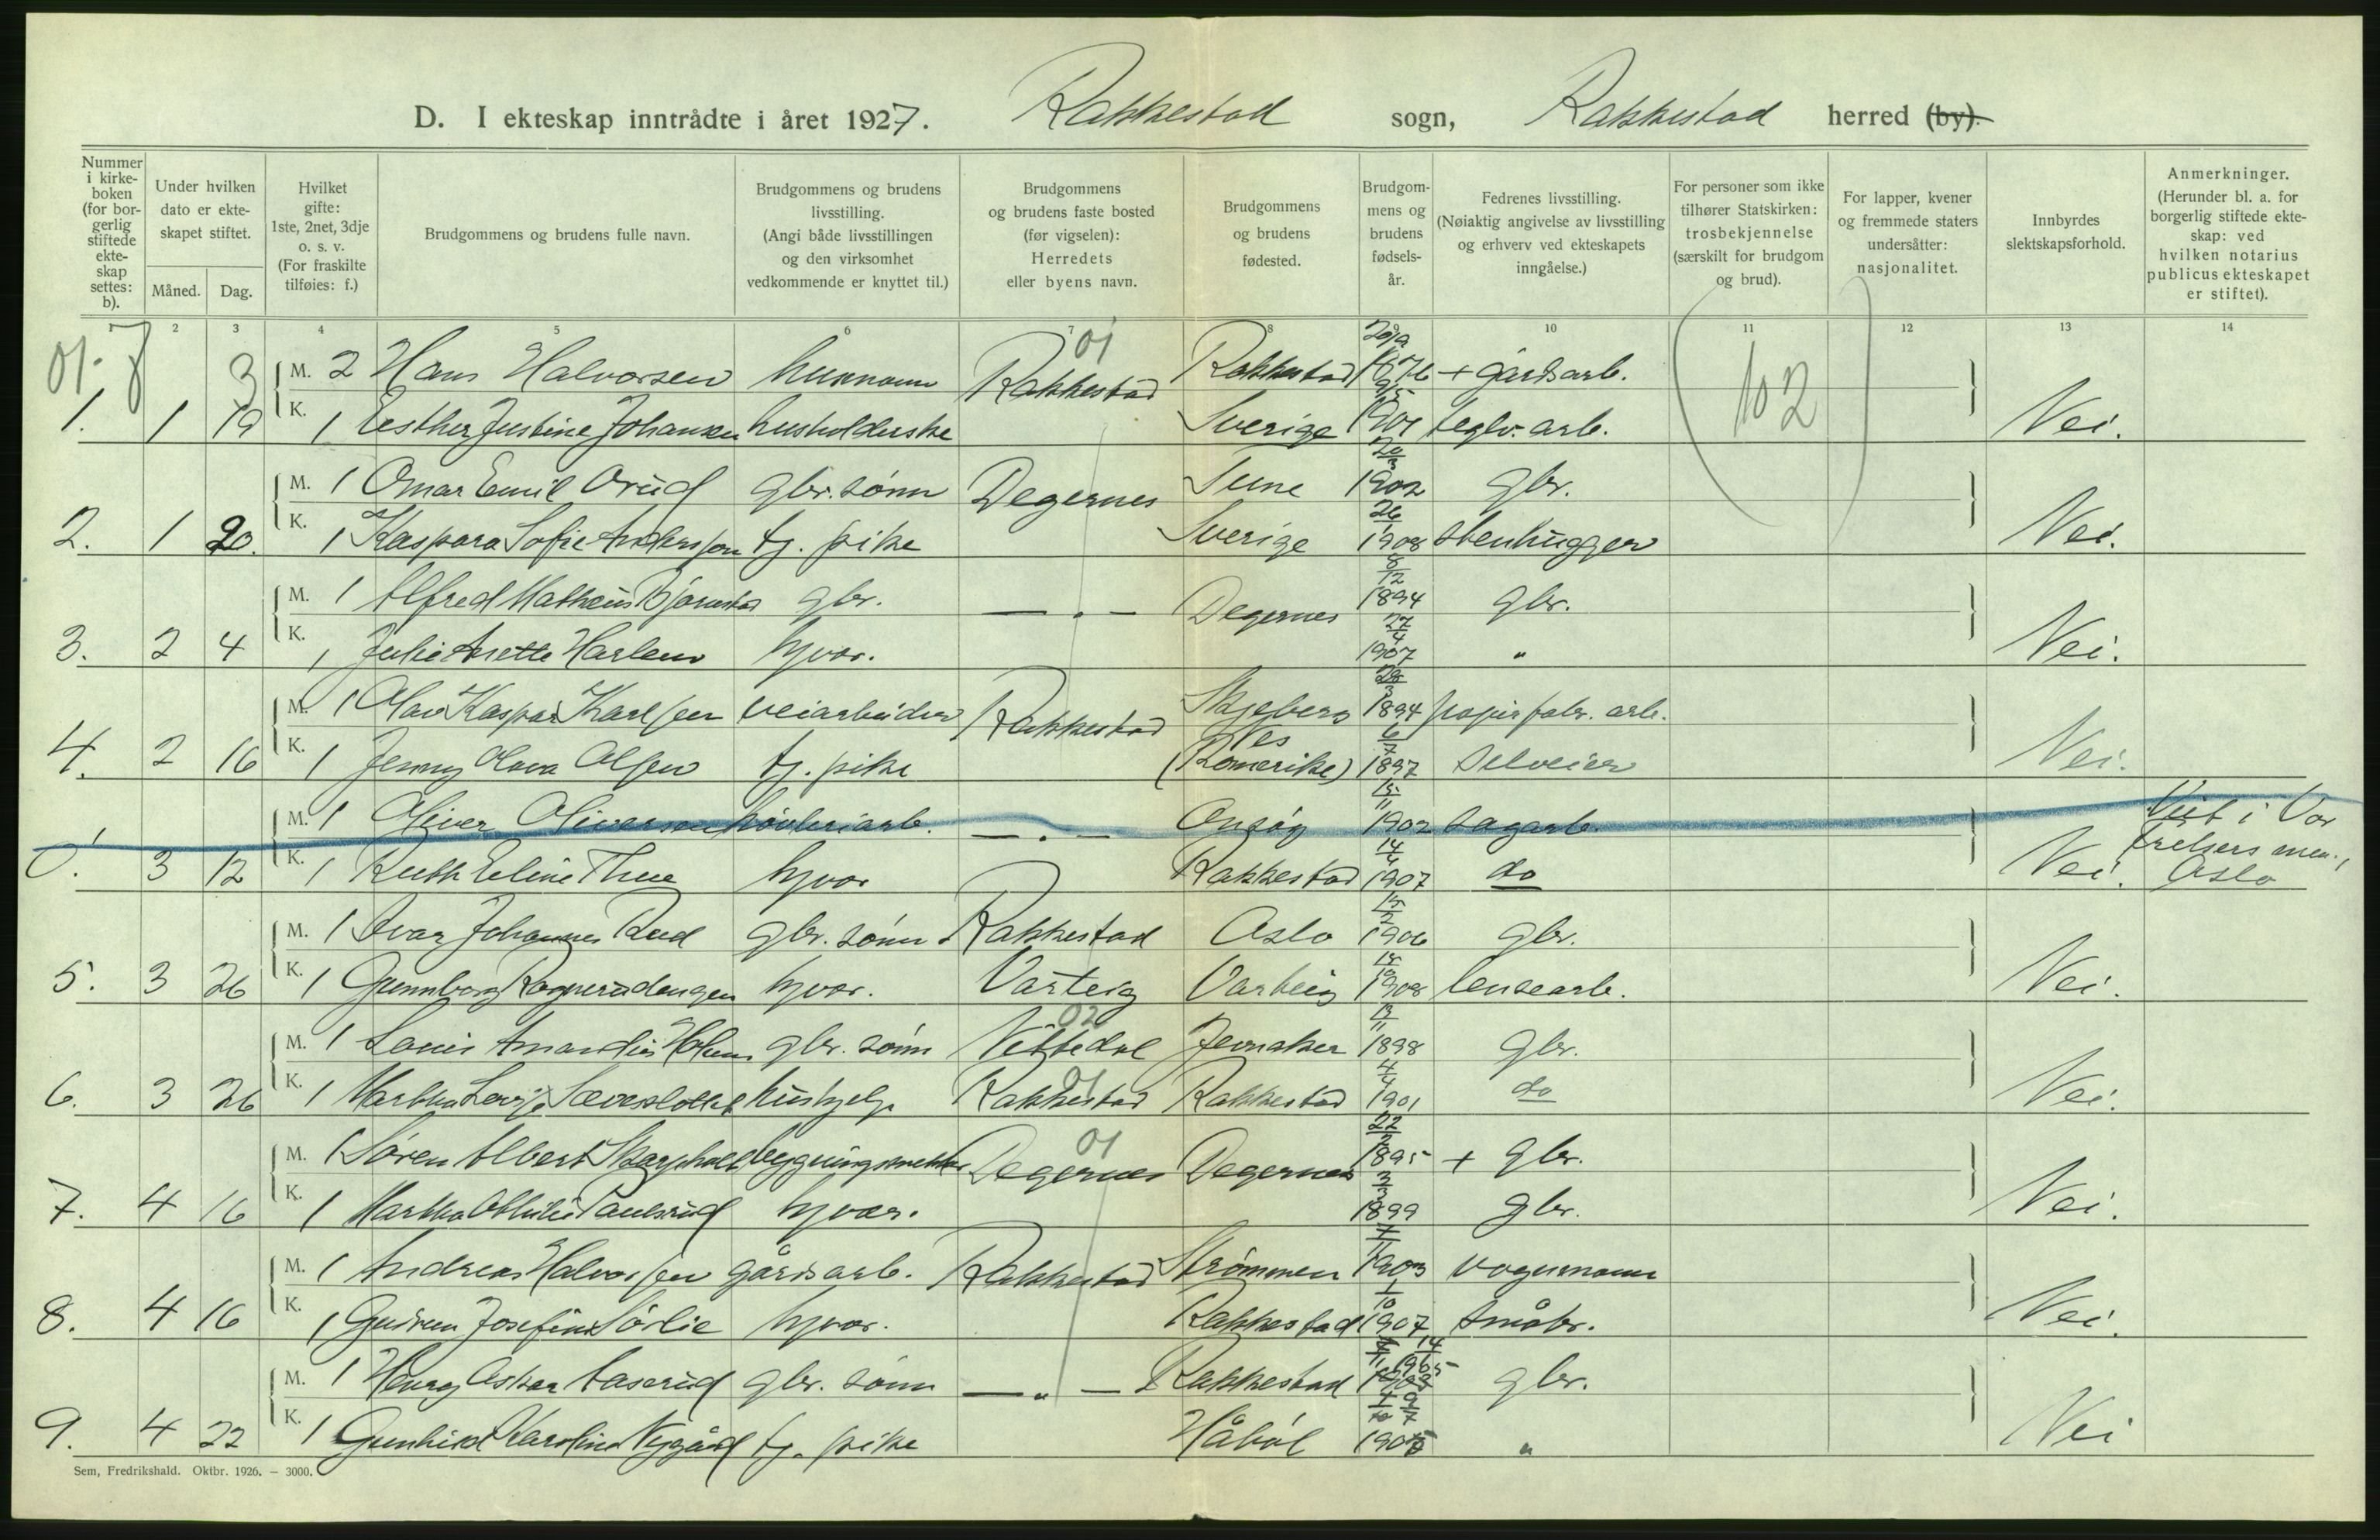 D. I ekteskap inntrådte i året 1927. Rakkestad sogn, Rakkestad herred (by).
Nummer i kirke-boken (for bor-gerlig stiftede ekte-skap settes: b).
Under hvilken dato er ekte-skapet stiftet.
Måned. Dag.
Hvilket gifte: 1ste, 2net, 3dje o. s. v. (For fraskilte tilføies: f.)
Brudgommens og brudens fulle navn.
Brudgommens og brudens livsstilling. (Angi både livsstillingen og den virksomhet vedkommende er knyttet til.)
Brudgommens og brudens faste bosted (før vigselen): Herredets eller byens navn.
Brudgommens og brudens fødested.
Brudgom-mens og brudens fødsels-år.
Fedrenes livsstilling. (Nøiaktig angivelse av livsstilling og erhverv ved ekteskapets inngåelse.)
For personer som ikke tilhører Statskirken: trosbekjennelse (særskilt for brudgom og brud).
For lapper, kvener og fremmede staters undersåtter: nasjonalitet.
Innbyrdes slektskapsforhold.
Anmerkninger. (Herunder bl. a. for borgerlig stiftede ekte-skap: ved hvilken notarius publicus ekteskapet er stiftet).
1 2 3 4 5 6 7 8 9 10 11 12 13 14
01 3 01 102
M. 2 Hans Halvorsen husmann Rakkestad Rakkestad 1876 + gårdsarb.
1. 1 19 K. 1 Esther Justine Johansen husholderske Sverige 1901 teglv. arb. Nei.
M. 1 Omar Emil Orud gbr. sønn Degernes Tune 20/3 1902 gbr.
2. 1 20. K. 1 Kaspara Sofie Anderssen tj. pike Sverige 26/1 1908 stenhugger Nei.
M. 1 Alfred Matheus Bjørnstad gbr. — „ — Degernes 8/12 1894 gbr.
3. 2 4 K. 1 Julie Anette Harlem hjvær. 27/4 1907 „ Nei.
M. 1 Olav Kaspar Karlsen veiarbeider Rakkestad Skjeberg 28/3 1894 papirfabr. arb.
4. 2 16 K. 1 Jenny Olava Olsen tj. pike Nes (Romerike) 6/7 1897 Selveier Nei.
M. 1 Oliver Oliversen høvleriarb. — „ — Onsøy 15/11 1902 sagarb.
0. 3 12 K. 1 Ruth Eline Thue hjvær Rakkestad 14/4 1907 do Nei. Viet i Vor Frelsers men., Oslo
M. 1 Ivar Johannes Rud gbr. sønn Rakkestad Oslo 15/2 1906 gbr.
5. 3 26 K. 1 Gunnborg Ragnerudengen hjvær. Varteig Varteig 1908 lensearb. Nei.
02
M. 1 Louis Amandus Holum gbr. sønn Nittedal Jevnaker 13/11 1898 gbr.
01
6. 3 26 K. 1 Martha Lovise Sæveslottet hushjelp Rakkestad Rakkestad 4/4 1901 do Nei.
01
M. 1 Søren Albert Skarpholt bygningssnekker Degernes Degernes 22/2 1895 + gbr.
7. 4 16 K. 1 Martha Othilie Paulsrud hjvær. 3/3 1899 gbr. Nei.
M. 1 Andreas Halvorsen gårdsarb. Rakkestad Strømmen 1903 vognmann
8. 4 16 K. 1 Gudrun Josefine Sørlie hjvær. Rakkestad 1/10 1907 småbr. Nei.
M. 1 Henry Oskar Aaserud gbr. sønn — „ — Rakkestad 14/11 1905 gbr.
9. 4 22 K. 1 Gunhild Karoline Nygård tj. pike Håbøl 9/7 1905 „ Nei
Sem, Fredrikshald. Oktbr. 1926. — 3000.